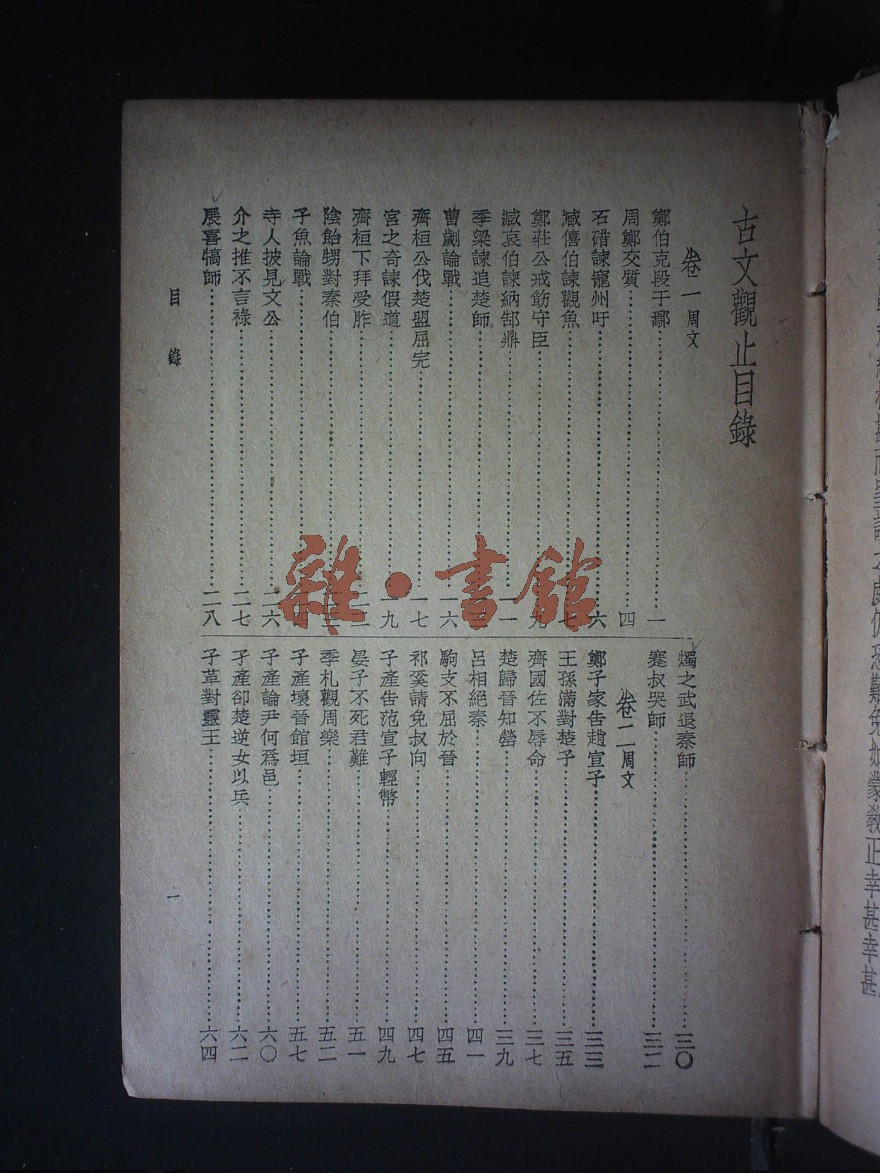 古文觀止目錄
卷一 周文
鄭伯克段于鄢……一
周鄭交質……四
石碏諫寵州吁……六
臧僖伯諫觀魚……七
鄭莊公戒飭守臣……九
臧哀伯諫納郜鼎……一一
季梁諫追楚師
曹劌論戰……一六
齊桓公伐楚盟屈完……一七
宮之奇諫假道……一九
齊桓下拜受胙
陰飴甥對秦伯
子魚論戰
寺人披見文公……二六
介之推不言祿……二七
展喜犒師……二八
燭之武退秦師……三〇
蹇叔哭師……三二
卷二 周文
鄭子家告趙宣子……三三
王孫滿對楚子……三五
齊國佐不辱命……三七
楚歸晉知罃……三九
呂相絕秦……四一
駒支不屈於晉……四五
祁奚請免叔向……四七
子產告范宣子輕幣……四九
晏子不死君難……五一
季札觀周樂……五二
子產壞晉館垣……五七
子產論尹何爲邑……六〇
子產卻楚逆女以兵……六二
子革對靈王……六四
目錄
一
雜·書館
正幸甚幸甚